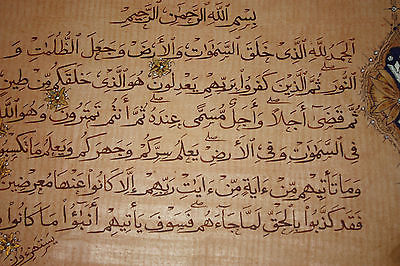 بسم الله الرحمن الرحيم
الحمد لله الذى خلق السموات والأرض وجعل الظلمات و
النور ثم الذين كفروا بربهم يعدلون هو الذى خلقكم من طين
ثم قضى أجلا وأجل مسمى عنده ثم أنتم تمترون وهو الله
فى السموات وفى الأرض يعلم سركم وجهركم ويعلم ما تكسبو
وما تأتيهم من ءاية من ءايت ربهم إلا كانوا عنها معرضين
فقد كذبوا بالحق لما جاءهم فسوف يأتيهم أنبؤا ما كانوا
يستهزءون